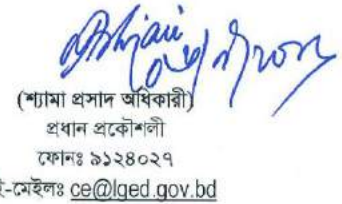 (শ্যামা প্রসাদ অধিকারী)
প্রধান প্রকৌশলী
ফোনঃ ৯১২৪০২৭
ই-মেইলঃ ce@lged.gov.bd